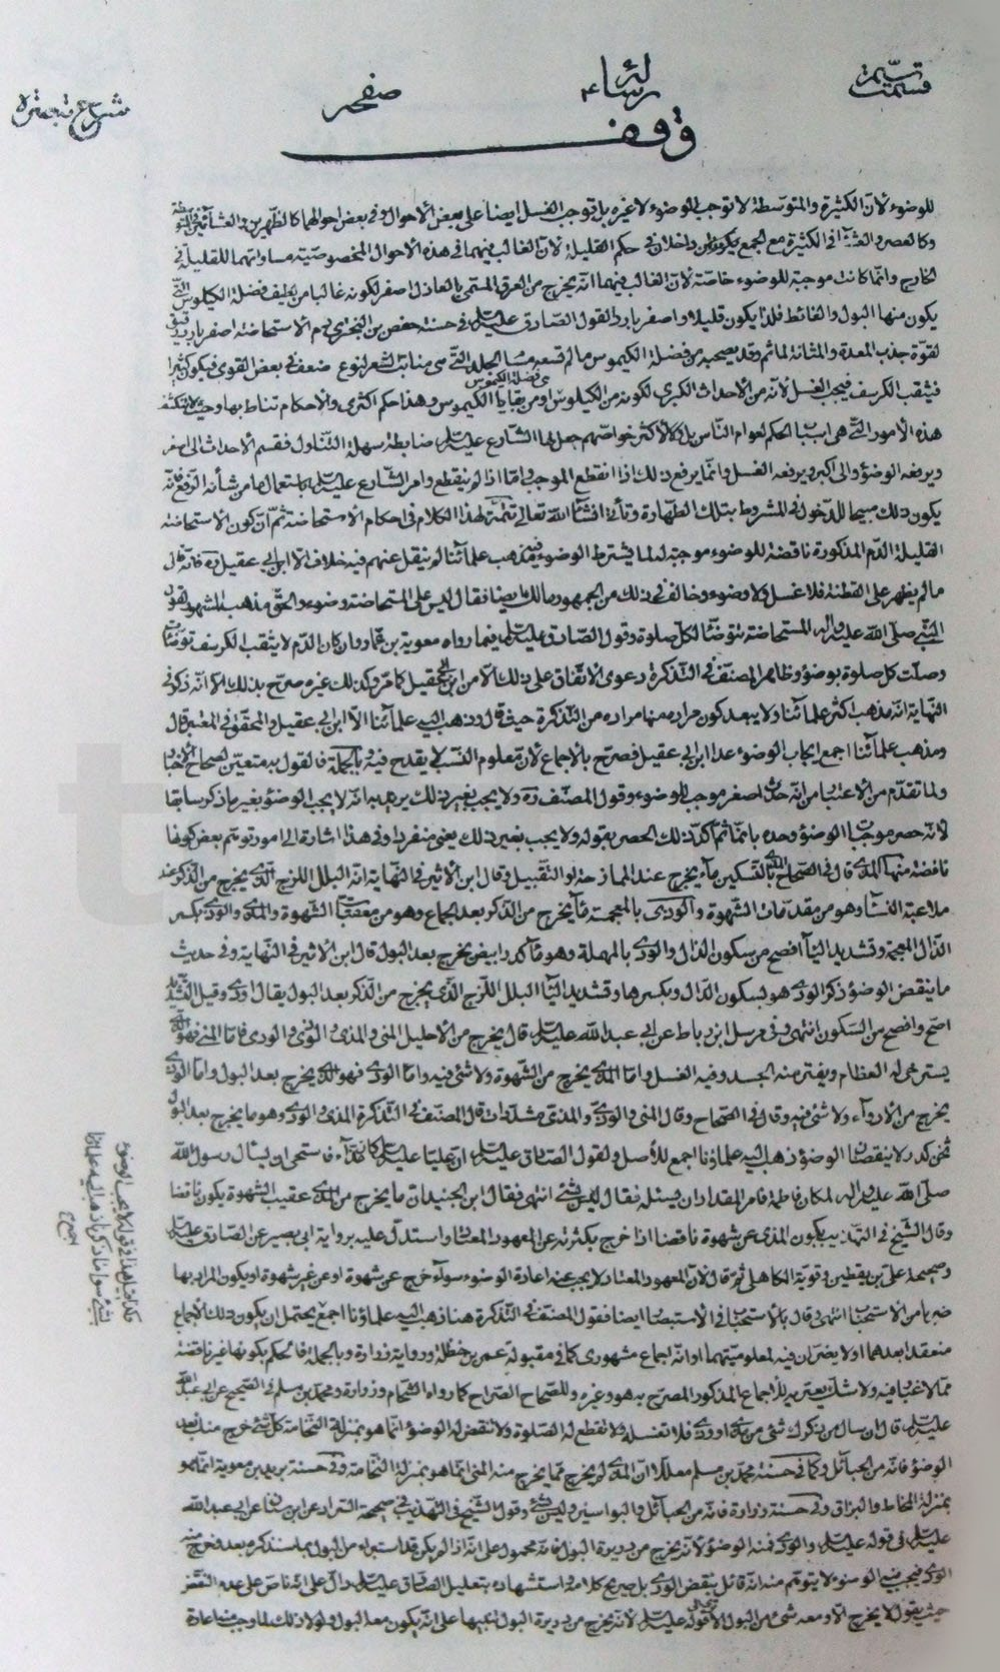 صفحه
رسالة
وقف
للوضوء لأن الكثيرة والمتوسطة لا توجب الوضوء لا غيره بل توجب الغسل ايضا على بعض الأحوال وفى بعض احوالهما كالظهرين والعشائين
حكم القليلة لأن الغالب فيهما فى هذه الأحوال المخصوصة مساواتهما للقليلة فى
الخارج وانما كانت موجبة للوضوء خاصة لأن الغالب فيهما انه يخرج من العرق المسمى بالعاذل اصفر لكونه غالبا من لطيف فضلة الكيلوس التى
يكون منها البول والغائط فلذا يكون قليلا واصفر باردا لقول الصادق عليه السلم فى حسنة حفص بن البخترى دم الاستحاضة اصفر بارد
لقوة جذب المعدة والمثانة لما ثم وقد يصحبه من فضلة الكيموس ما لم تسعه مسام الجلد التى هى منابت الشعر لنوع ضعف فى بعض القوى فيكون كثيرا
فيثقب الكرسف فيجب الغسل لأنه من الأحداث الكبرى لكونه من الكيلوس او من بقايا الكيموس وهذا حكم اكثرى والأحكام تناط بها وحيث
هذه الأمور التى هى اسباب الحكم لعوام الناس بل ولأكثر خواصهم جعل لها الشارع عليه السلم ضابطة سهلة التناول فقسم الأحداث الى اصغر
ويرفعه الوضوء والى اكبر ويرفعه الغسل وانما يرفع ذلك اذا انقطع الموجب واما اذا لم ينقطع وامر الشارع عليه السلم باستعمال ما من شأنه الرفع فانه
يكون ذلك مبيحا للدخول فى المشروط بتلك الطهارة ويأتى انشاء الله تعالى تتمة لهذا الكلام فى احكام الاستحاضة ثم ان كون الاستحاضة
القليلة الدم المذكورة ناقضة للوضوء موجبة له لما يشترط الوضوء فيه مذهب علمائنا لم ينقل عنهم فيه خلاف الا ابن ابى عقيل ره فانه قال
ما لم يظهر على القطنة فلا غسل ولا وضوء وخالف فى ذلك من الجمهور مالك ايضا فقال ليس على المستحاضة وضوء والحق مذهب المشهور لقول
النبى صلى الله عليه واله المستحاضة تتوضأ لكل صلوة وقول الصادق عليه السلم فيما رواه معوية بن عمار وان كان الدم لا يثقب الكرسف توضأت
وصلت كل صلوة بوضوء وظاهر المصنف فى التذكرة دعوى الاتفاق على ذلك الا من ابن ابى عقيل كما مر وكذلك غيره صرح بذلك الا انه ذكر فى
النهاية انه مذهب اكثر علمائنا ولا يبعد كون مراده منها مراده من التذكرة حيث قال وذهب اليه علمائنا الا ابن ابى عقيل والمحقق فى المعتبر قال
ومذهب علمائنا اجمع ايجاب الوضوء عدا ابن ابى عقيل فصرح بالاجماع لأن معلوم النسب لا يقدح فيه وبالجملة فالقول به متعين لصحاح الأخبار
ولما تقدم من الاعتبار من انه حدث اصغر موجب للوضوء وقول المصنف ره ولا يجب بغير ذلك يريد به انه لا يجب الوضوء بغير ما ذكر سابقا
لأنه حصر موجبات الوضوء وحده بانما ثم اكد ذلك الحصر بقوله ولا يجب بغير ذلك يعنى منفردا وفى هذا اشارة الى امور توهم بعض كونها
ناقضة منها المذى قال فى الصحاح المذى بالتسكين ماء يخرج عند الممازحة او التقبيل وقال ابن الأثير فى النهاية انه البلل اللزج الذى يخرج من الذكر عند
ملاعبة النساء وهو من مقدمات الشهوة والوذى بالمعجمة ماء يخرج من الذكر بعد الجماع وهو من معقبات الشهوة والمذى والوذى بكسر
الذال المعجمة وتشديد الياء افصح من سكون الذال والودى بالمهملة وهو ماء كدر ابيض يخرج بعد البول قال ابن الأثير فى النهاية وفى حديث
ما ينقض الوضوء ذكر الودى هو بسكون الدال وبكسرها وتشديد الياء البلل اللزج الذى يخرج من الذكر بعد البول يقال ودى وقيل التشديد
اصح وافصح من السكون انتهى وفى مرسل ابن رباط عن ابى عبد الله عليه السلم قال يخرج من الاحليل المنى والمذى والوذى والودى فاما المنى فهو الذى
يسترخى له العظام ويفتر منه الجسد وفيه الغسل واما المذى يخرج من الشهوة ولا شئ فيه واما الودى فهو الذى يخرج بعد البول واما الوذى
يخرج من الأدواء ولا شئ فيه وقال فى الصحاح وقال المنى والودى والمذى مشددات قال المصنف فى التذكرة المذى والودى وهو ما يخرج بعد البول
ثخن كدر لا ينقضان الوضوء ذهب اليه علماؤنا اجمع للأصل ولقول الصادق عليه السلم ان عليا عليه السلم كان مذاء فاستحى ان يسأل رسول الله
صلى الله عليه واله لمكان فاطمة فامر المقداد ان يسئله فقال ليس بشئ انتهى فقال ابن الجنيد ان ما يخرج من المذى عقيب الشهوة يكون ناقضا
وقال الشيخ فى التهذيب بكون المذى عن شهوة ناقضا اذا خرج بكثرته عن المعهود المعتاد واستدل عليه برواية ابى بصير عن الصادق عليه السلم
وصحيحة على بن يقطين وقوية الكاهلى ثم قال لأن المعهود المعتاد لا يجب عنه اعادة الوضوء سواء خرج عن شهوة او عن غير شهوة او يكون المراد بها
ضربا من الاستحباب انتهى وقال بالاستحباب فى الاستبصار ايضا فقول المصنف فى التذكرة هنا ذهب اليه علماؤنا اجمع يحتمل ان يكون ذلك الاجماع
منعقد بعدهما او لا يضران فيه لمعلوميتهما او انه اجماع مشهورى كما فى مقبولة عمر بن حنظلة ورواية زرارة وبالجملة فالحكم بكونها غير ناقضة
مما لا غبار فيه ولا شك يعتريه للاجماع المذكور المصرح به هو وغيره وللصحاح الصراح كما رواه الشحام وزرارة ومحمد بن مسلم فى الصحيح عن ابى عبد الله
عليه السلم قال ان سال من ذكرك شئ من مذى او ودى فلا تغسله ولا تقطع له الصلوة ولا تنقض له الوضوء انما هو بمنزلة النخامة كل شئ خرج منك بعد
الوضوء فانه من الحبائل وكما فى حسنة محمد بن مسلم معللا ان المذى لم يخرج مما يخرج منه المنى انما هو بمنزلة النخامة وفى حسنة بريد بن معوية انما هو
بمنزلة المخاط والبزاق وفى حسنة زرارة فانه من الحبائل والبواسير وليس بشئ وقول الشيخ فى التهذيب فى صحيحة عن ابن سنان عن ابى عبد الله
عليه السلم فى قوله عليه السلم والودى فمنه الوضوء لأنه يخرج من دريرة البول فانه محمول على انه اذا لم يكن قد استبرأ من البول بما سنذكره بعد وخرج منه
الودى فيجب فيه الوضوء لا يتوهم منه انه قائل بنقض الودى بل صريح كلامه واستشهاده بتعليل الصادق عليه السلم دال على انه ناص على عدم النقض
حيث يقول لا يخرج الا ومعه شئ من البول الا ترى الى قوله عليه السلم لأنه يخرج من دريرة البول تنبيها على انه يكون معه البول ولولا ذلك لما وجب منه اعادة